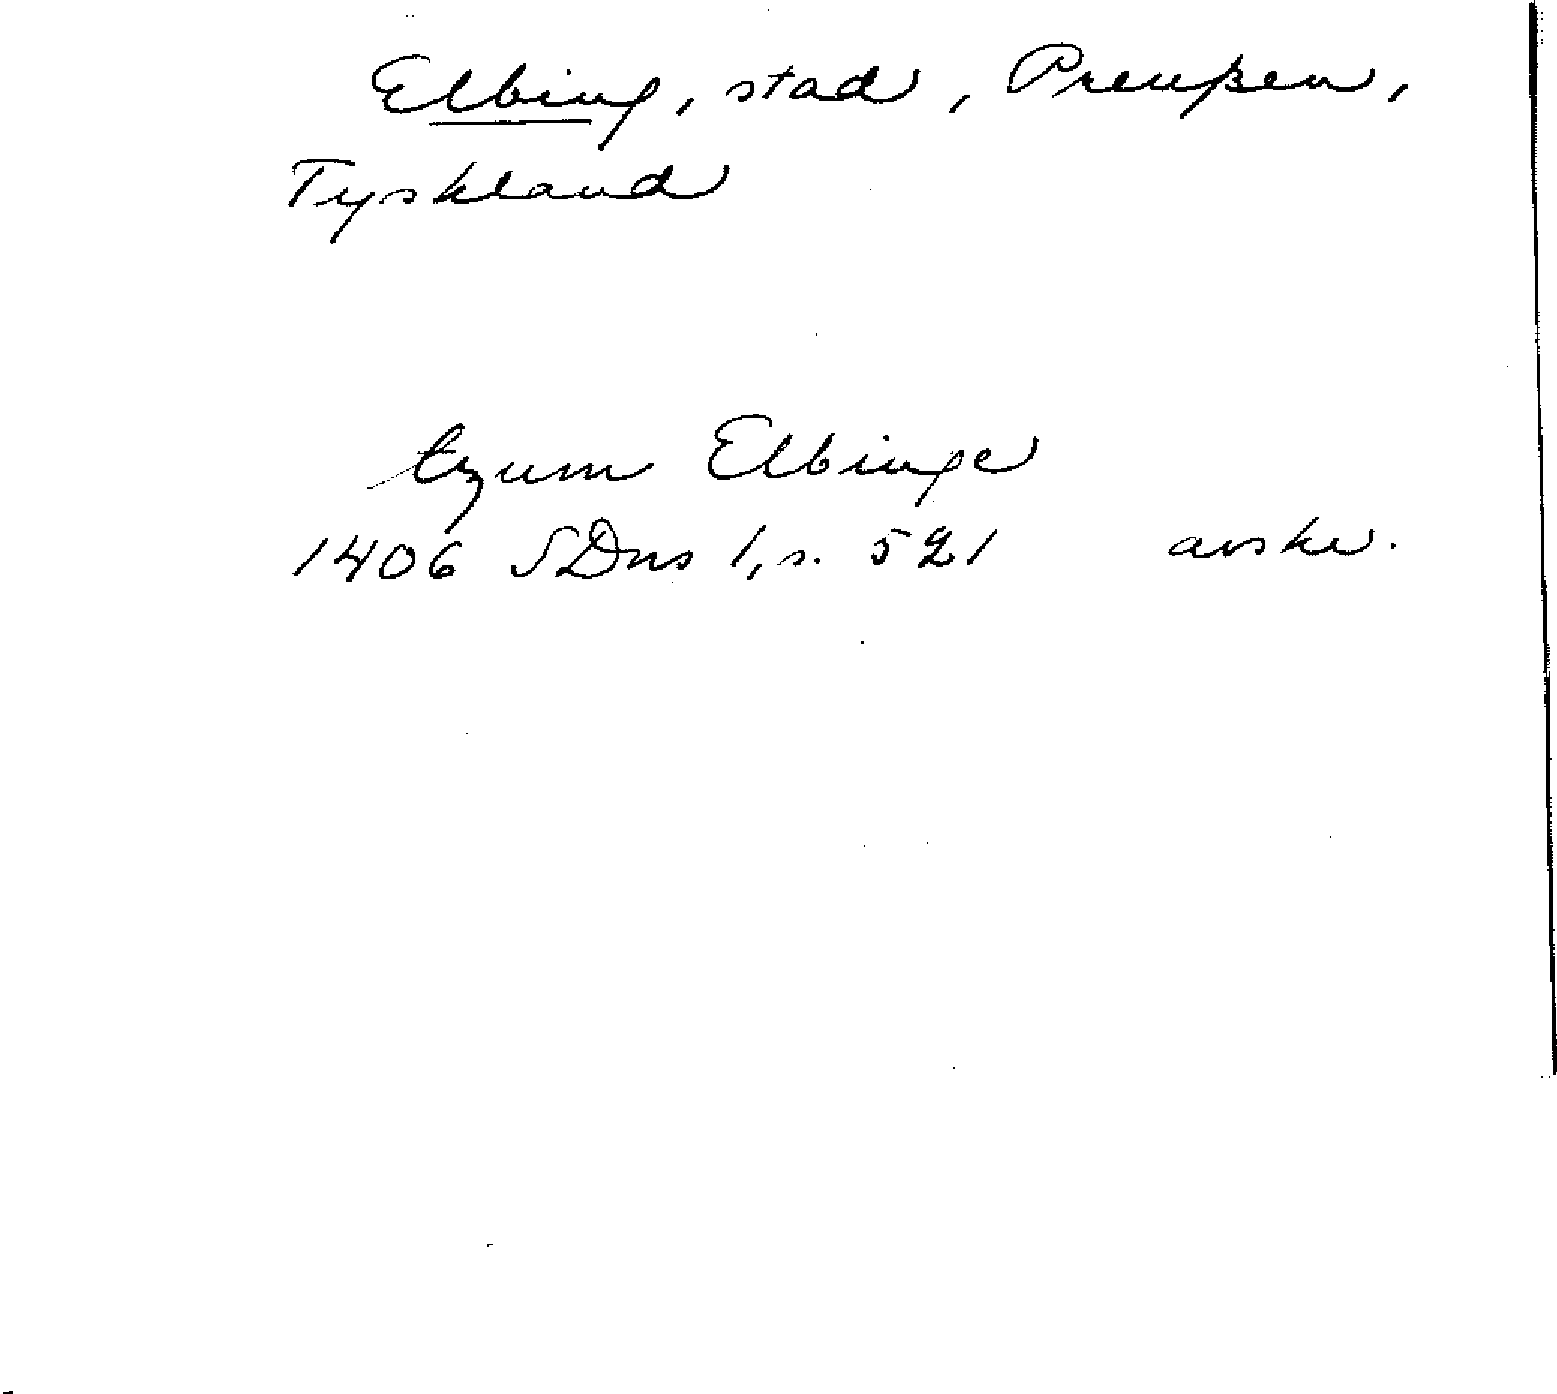 Elbing, stad, Preußen,
Tyskland
tzum Elbinge
1406 SDns 1, s. 521 avskr.